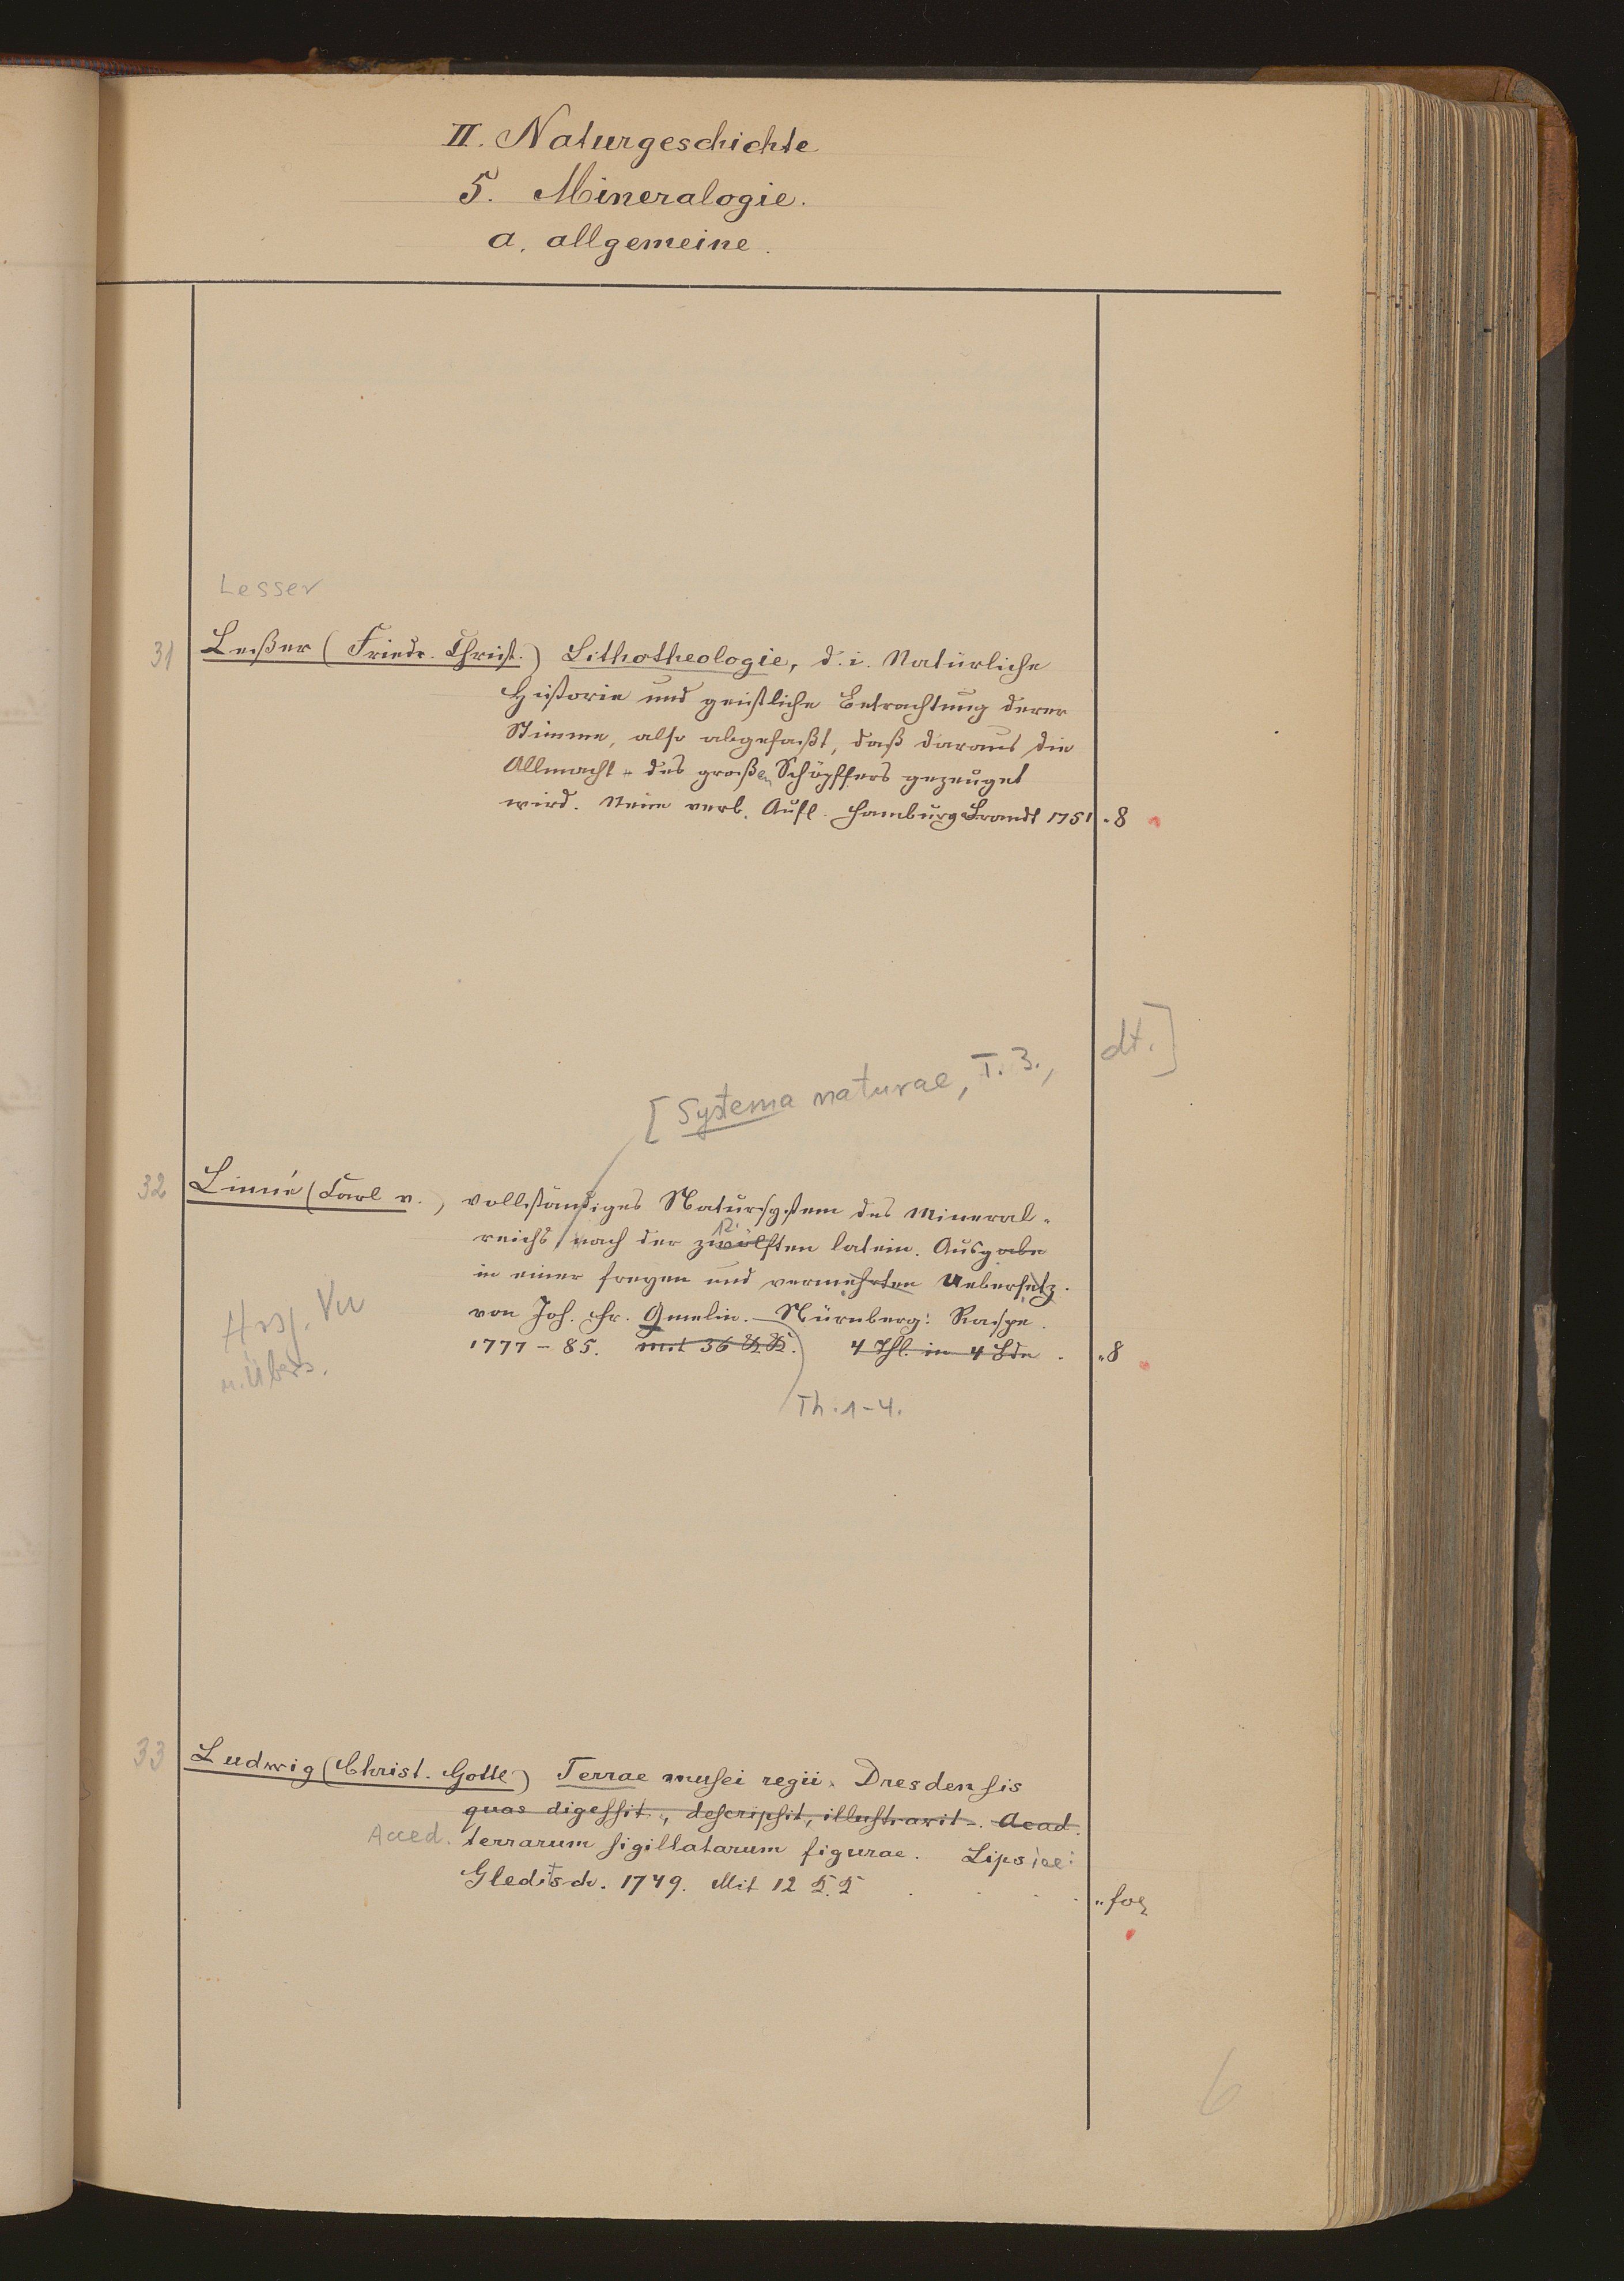 II. Naturgeschichte
5. Mineralogie.
a. allgemeine.
Lesser
31 Leßer (Friedr. Christ.) Lithotheologie, d. i. Natürliche
Historie und geistliche Betrachtung derer
Steine, also abgefaßt, daß daraus die
Allmacht des großen Schöpffers gezeuget
wird. Neue verb. Aufl. Hamburg Brandt 1751 "8
[Systema naturae, T. 3., dt.]
32 Linné (Carl v.) vollständiges Natursystem des Mineral-
12.
reichs nach der zwölften latein. Ausgabe
in einer freyen und vermehrten Uebersetz.
von Joh. Fr. Gmelin. Nürnberg: Raspe.
Hrsg. Vu
1777-85. mit 36 K.K. 4 Thl. in 4 Bde. "8
u. Übers.
Th. 1-4.
33 Ludwig (Christ. Gottl.) Terrae musei regii Dresdensis
quas digessit, descripsit, illustravit. Acad.
Acced. terrarum sigillatarum figurae. Lipsiae:
Gleditsch. 1749. Mit 12 T.T. "fol
6